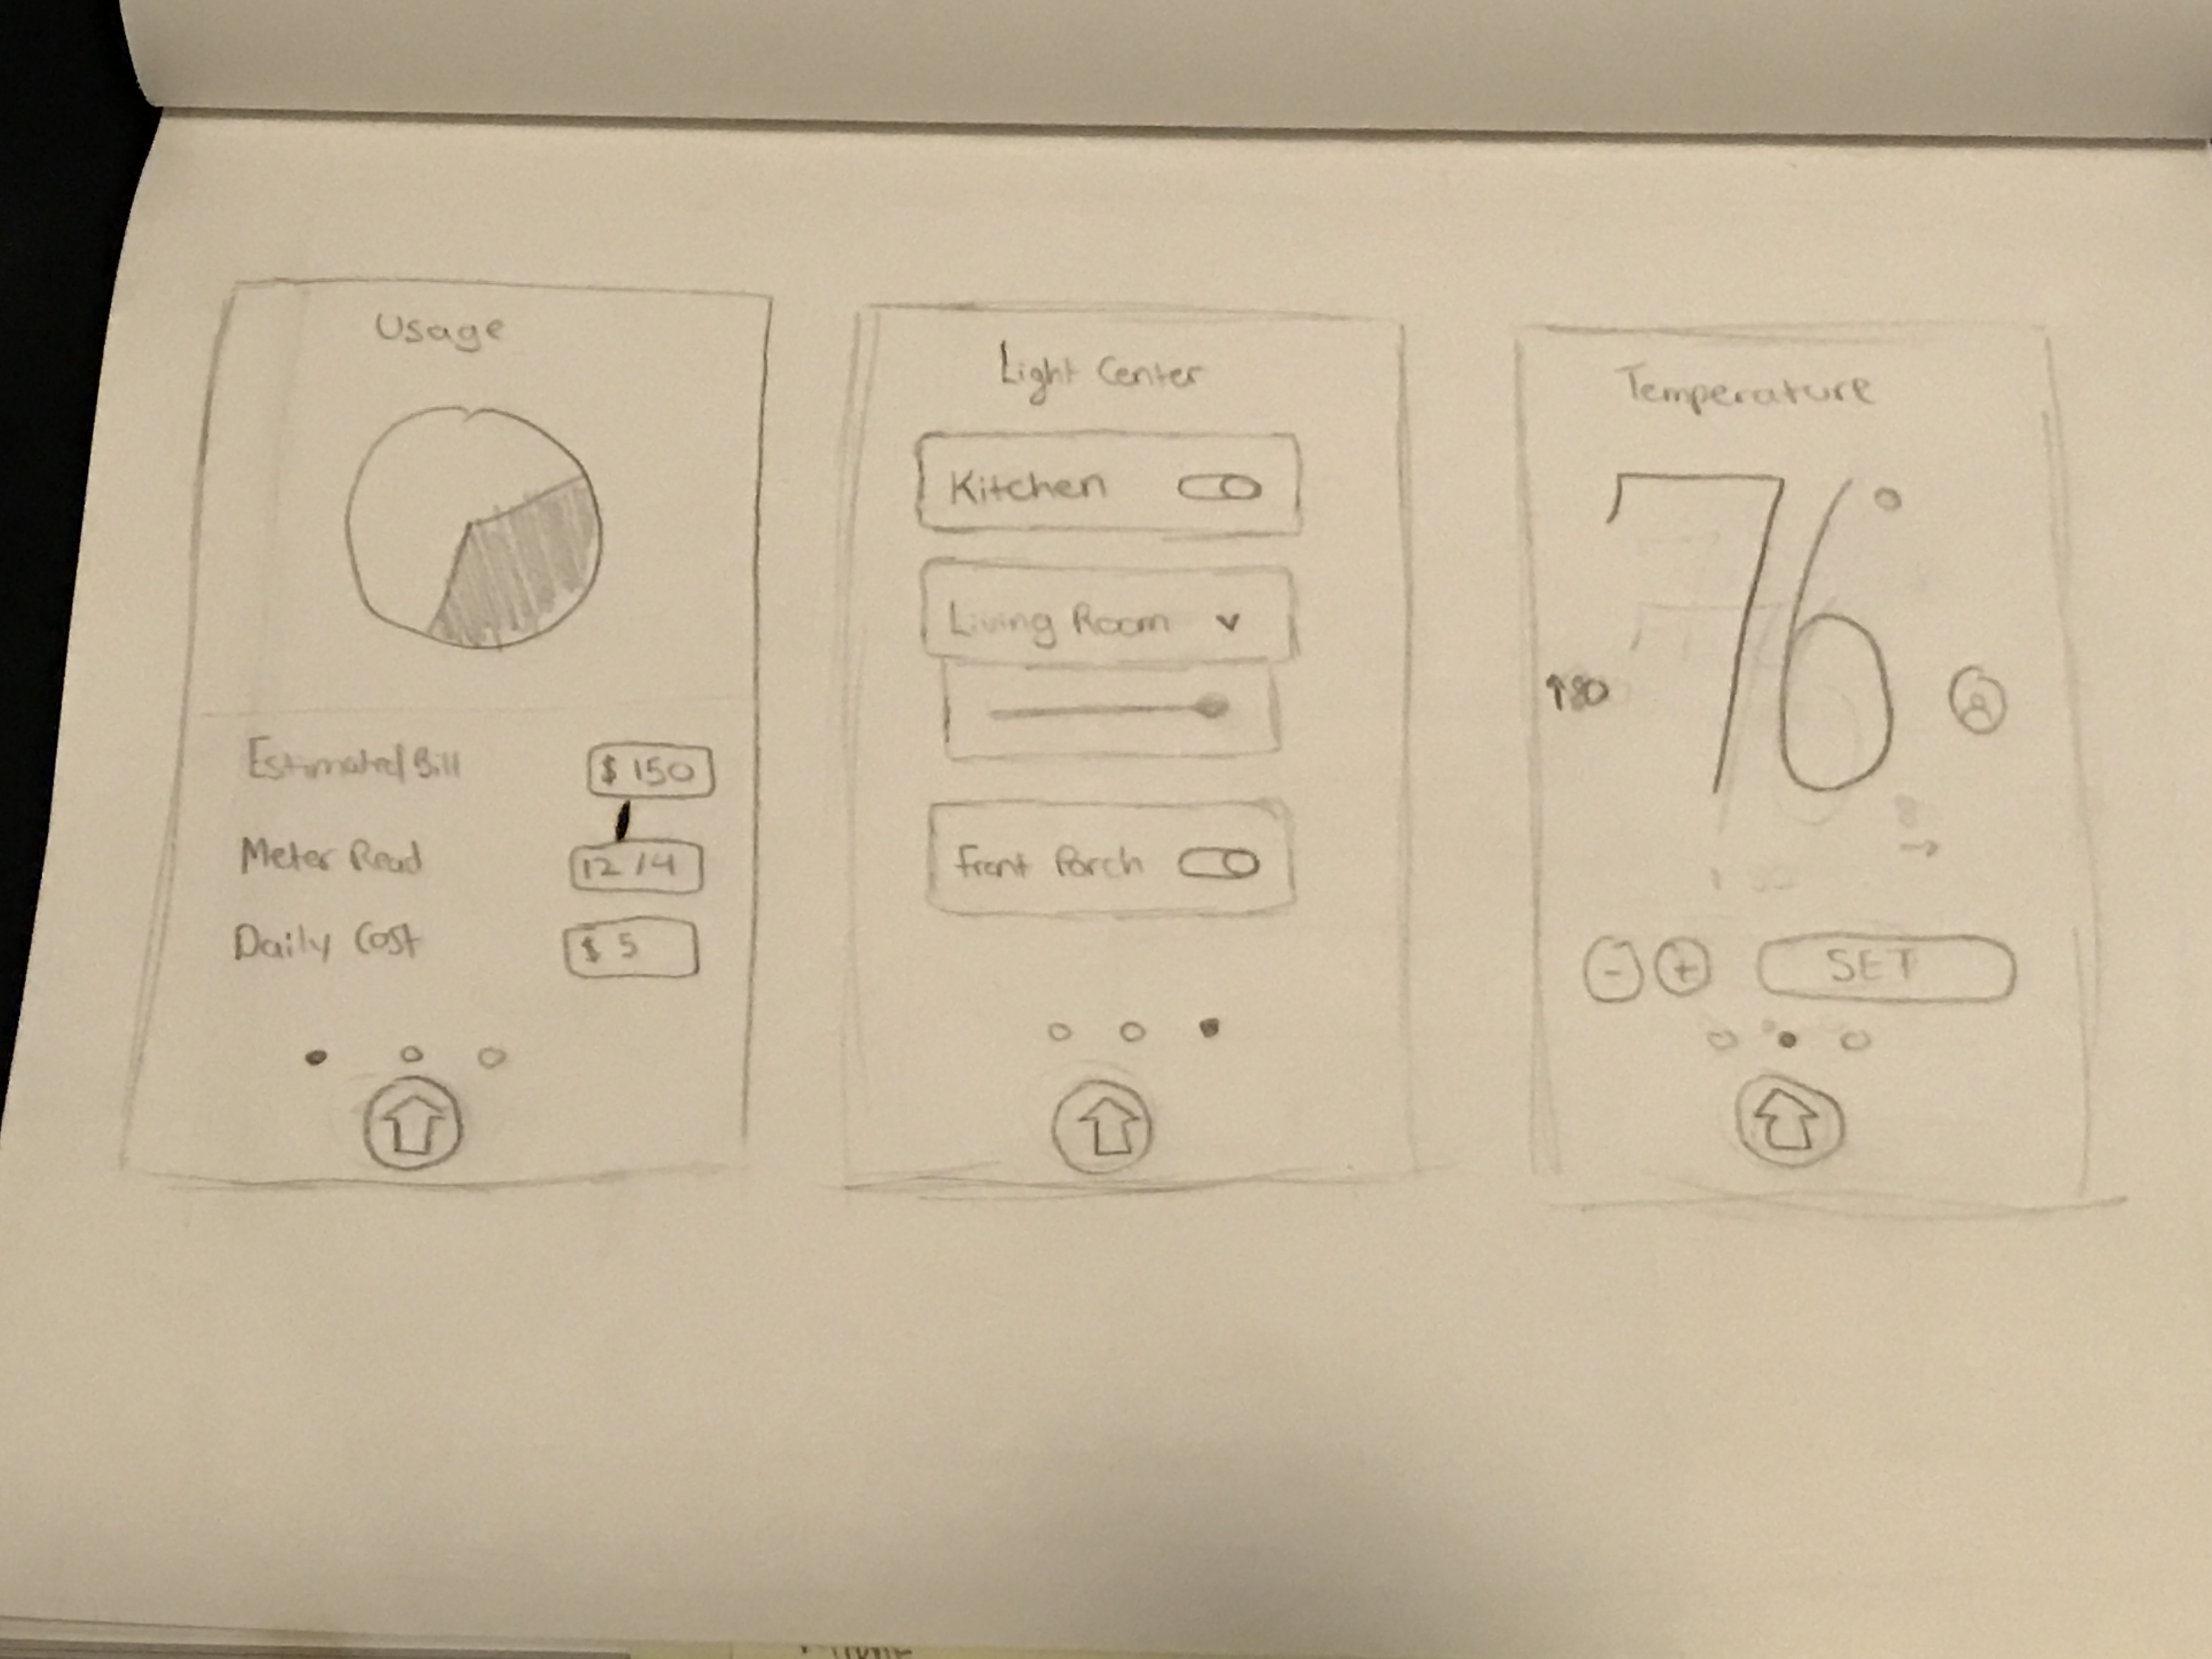 Usage
Estimated Bill $ 150
Meter Read 12/4
Daily Cost $ 5
Light Center
Kitchen
Living Room
Front Porch
Temperature
76°
↑80
- + SET